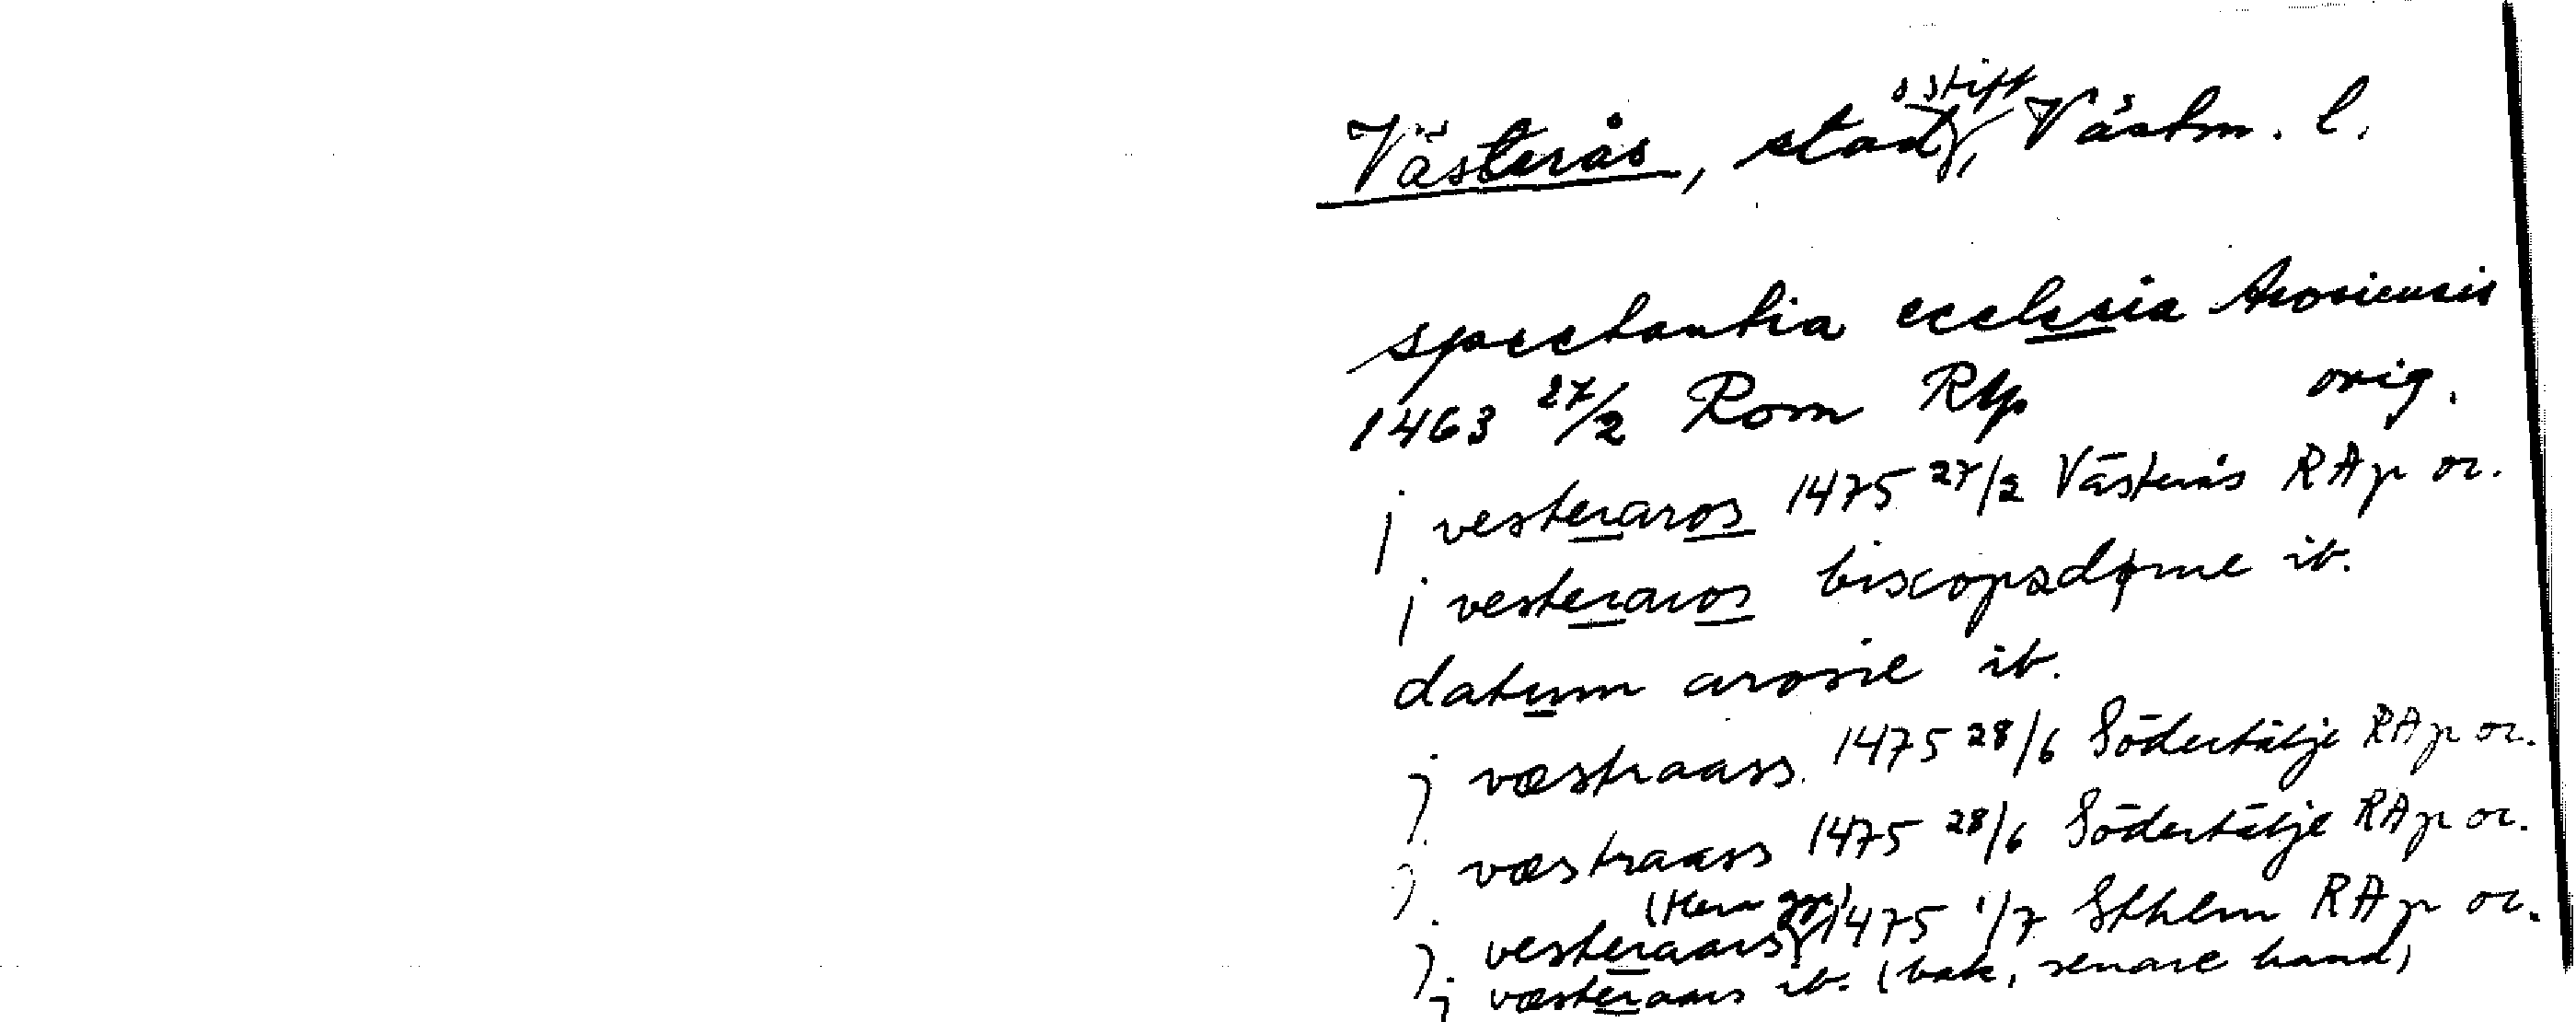 Västerås, stad o stift, Västm. l.
spectantia ecclesia Arosiensis
1463 27/2 Rom RAp orig.
j vesteraros 1475 27/2 Västerås RAp or.
j vesteraros biscopsdøme ib.
datum arosie ib.
j væstraass 1475 28/6 Södertälje RAp or.
j væstraass 1475 28/6 Södertälje RAp or.
j vesteraars 1475 1/7 Sthlm RAp or.
j væsteraars ib. (bak, senare hand)